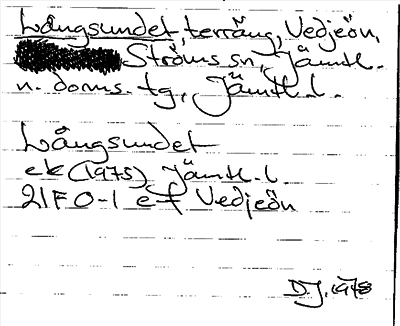 Långsundet, terräng, Vedjeön,
Ströms sn, Jämtl.
n. doms. tg, Jämtl. l.
Långsundet
ek (1975) Jämtl. l.
21F 0-1 e-f Vedjeön
DJ. 1978